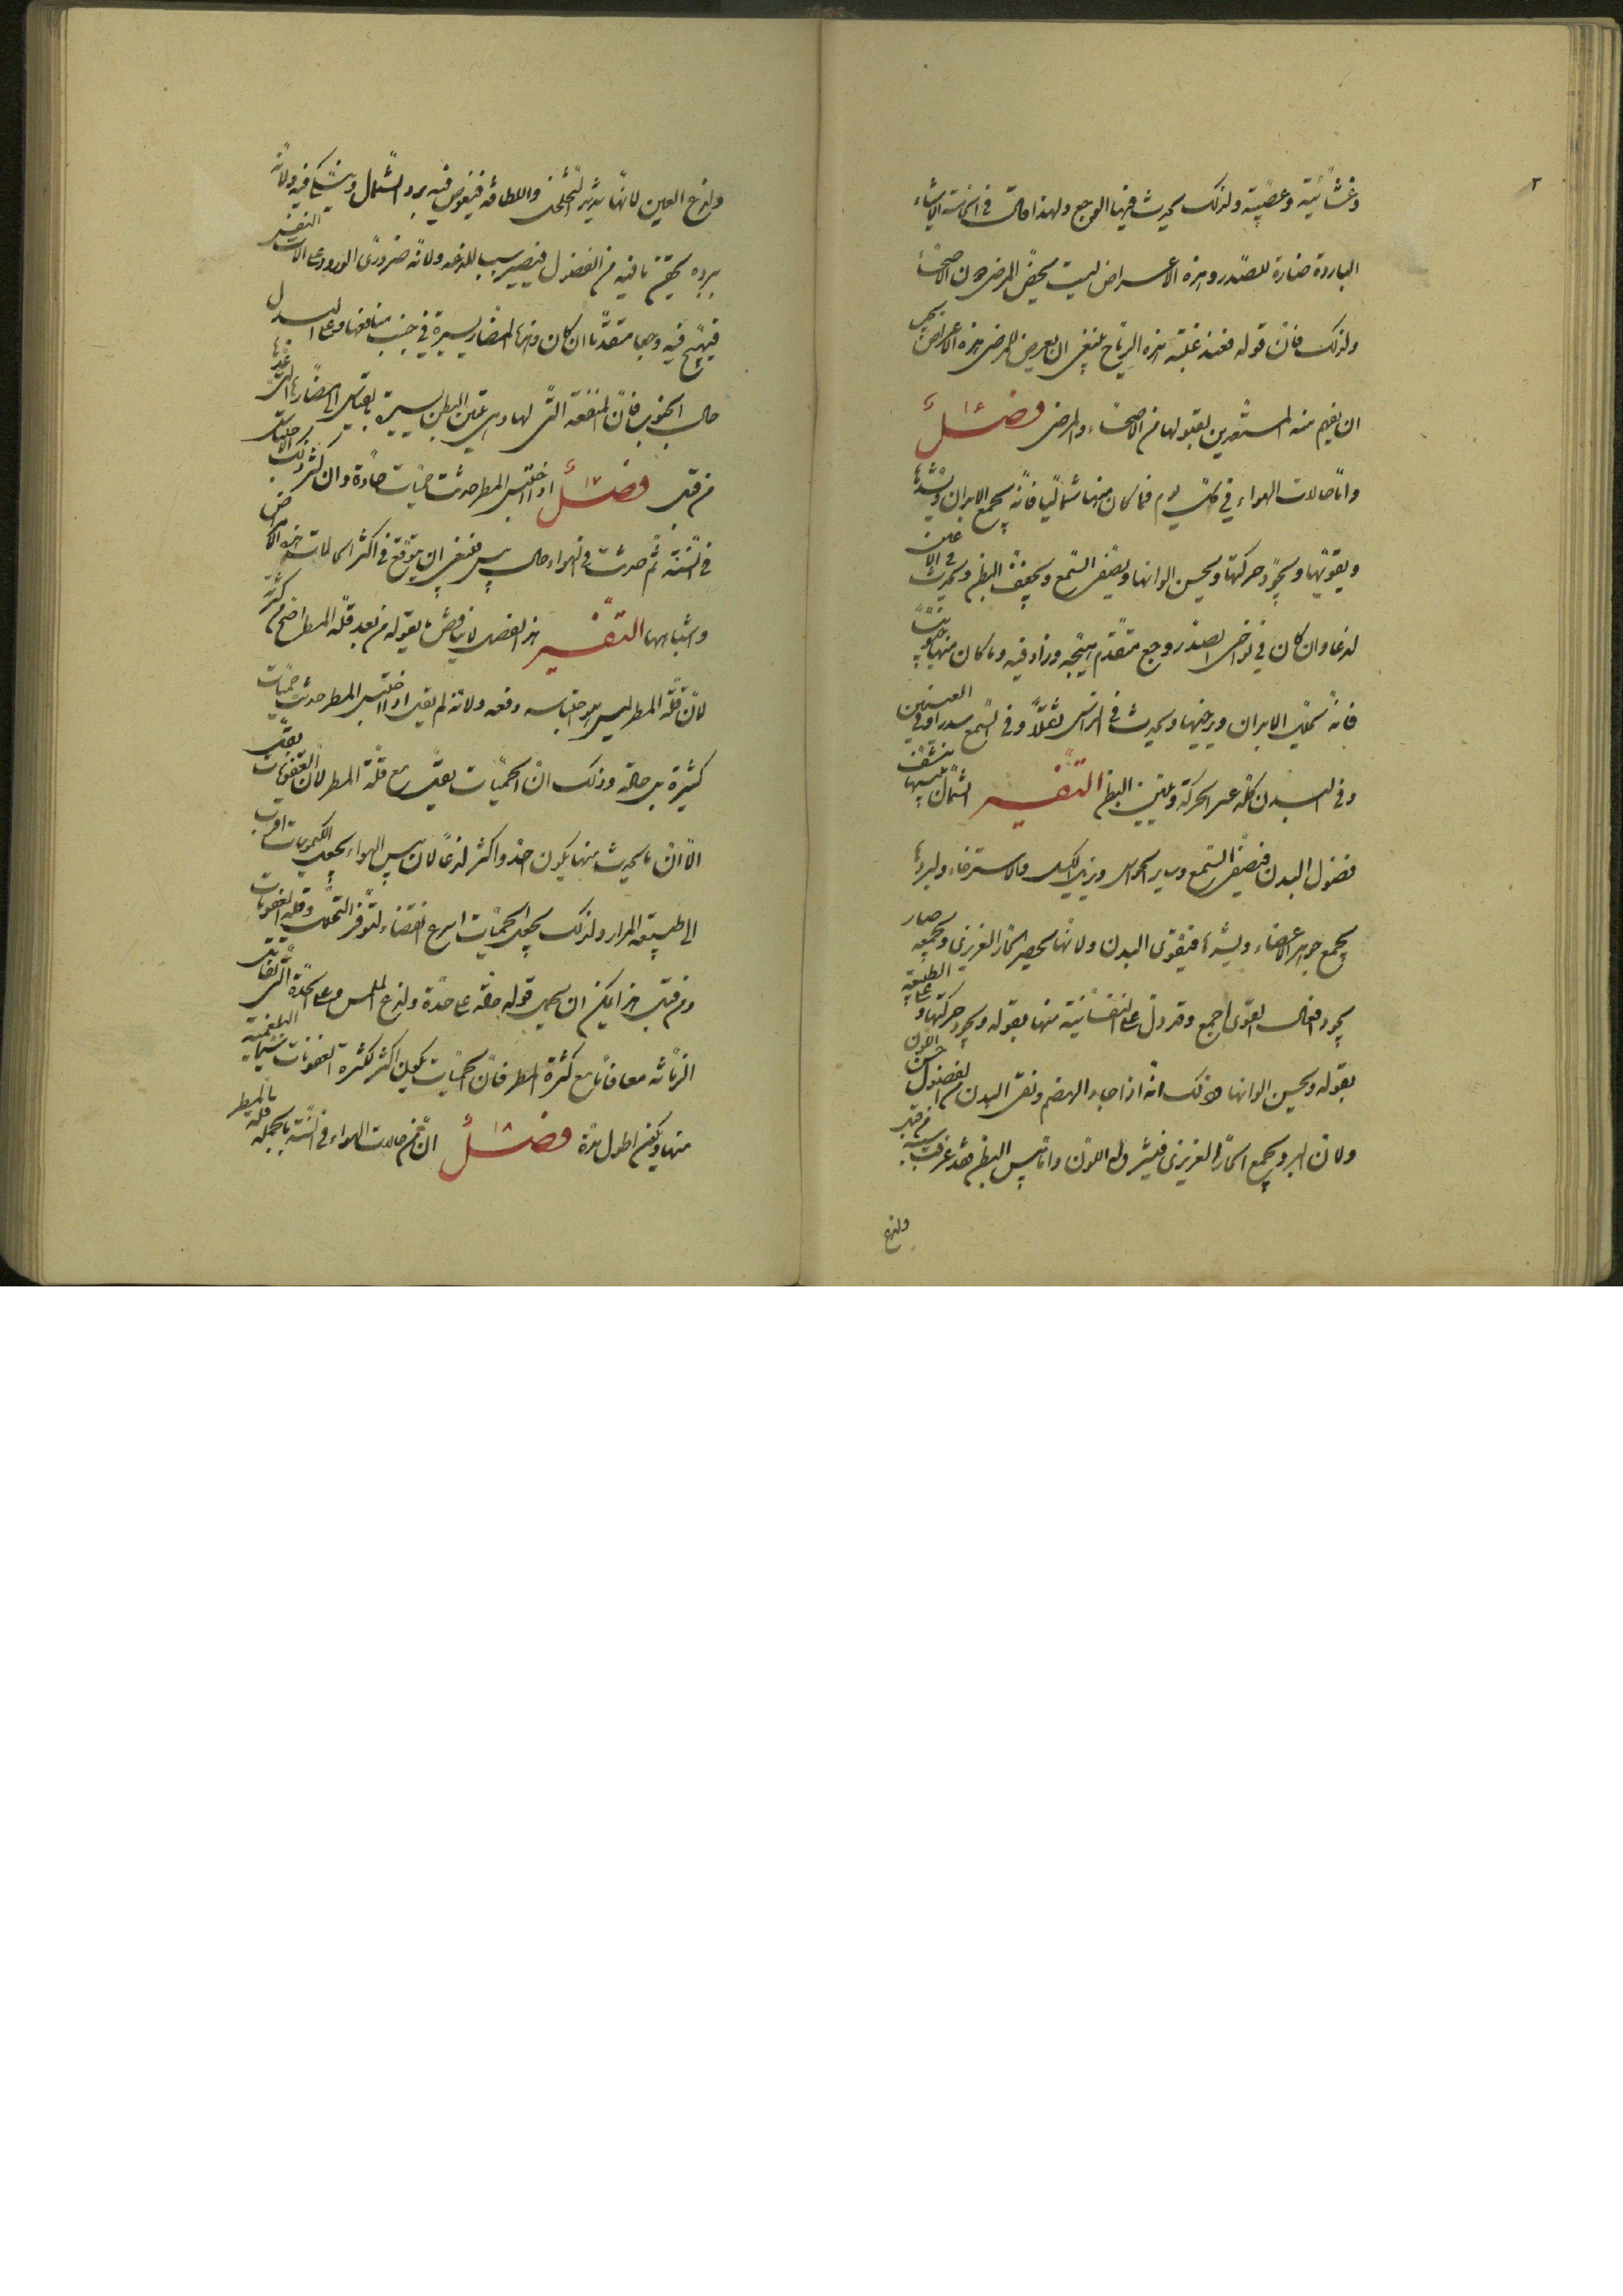 ٢
وغشائية وعصبية ولذلك يحدث فيها الوجع ولهذا قال في الخامسة الاشياء
الباردة ضارة للصدر وهذه الاعراض ليست تخص المرضى دون الاصحاء
ولذلك فان قوله فعند غلبة هذه الرياح ينبغي ان يعرض للمرضى هذه الاعراض يجب
ان يفهم منه المستعدين لقبولها من الاصحاء والمرضى فصل
واما حالات الهواء في كل يوم فما كان منها شماليا فانه يجمع الابدان ويشدها
ويقويها ويجود حركتها ويحسن الوانها ويصفى السمع ويجفف البطن ويحدث في الاعين
لذعا وان كان في نواحى الصدر وجع متقدم هيجه وزاد فيه وما كان منها جنوبيا
فانه يحلل الابدان ويرخيها ويحدث في الراس ثقلا وفي السمع وفي العينين سدرا
وفي البدن كله عسر الحركة ويلين البطن التفسير الشمال بيبسها تنشف
فضول البدن فيصفى السمع وساير الحواس ويزيل الكسل والاسترخاء وببردها
يجمع جوهر الاعضاء ويشدها فيقوى البدن ولانها تحصر الحار الغريزى وتجمعه صار
يجود افعال القوى اجمع وقد دل على النفسانية منها بقوله ويجود حركتها وعلى الطبيعية
بقوله ويحسن الوانها وذلك انه اذا جاد الهضم ونقى البدن من الفضول حسن اللون
ولان البرد يجمع الحار الغريزى فيشرق له اللون واما يبس البطن فقد عرفت سببه من قبل
ولذع
ولذع العين لانها شديدة التخلخل واللطافة فيغوص فيه برد الشمال وينكى فيه ولانه
ببرده يحقن ما فيه من الفضول فيصير سبب للذعه ولانه ضرورى الورود على الات التنفس
فيهيج فيه وجعا متقدما ان كان وهذه المضار يسيرة في جنب منافعها وعلى البدل
حال الجنوب فان المنفعة التى لها وهى تليين البطن يسيرة بالقياس الى مضارها التى عدها
من قبل فصل اذا احتبس المطر حدثت حميات حادة وان كثر ذلك الاحتباس
في السنة ثم حدثت في الهواء حال يبس فينبغى ان يتوقع في اكثر الحالات هذه الامراض
واشباهها التفسير هذا الفصل لا يناقض ما يقوله من بعد قلة المطر اصح من كثرته
لان قلة المطر ليس هو احتباسه دفعة ولانه لم يقل اذا احتبس المطر حدثت حميات
كثيرة بل حادة وذلك ان الحميات يقل مع قلة المطر لان العفونات يقل
الا ان ما يحدث منها يكون احد واكثر لذعا لان يبس الهواء يجعل الكيموسات اقرب
الى طبيعة المرار ولذلك يجعل الحميات اسرع انقضاء لتوفر التحلل وقلة العفونات
ومن قبل هذا يمكن ان يحمل قوله حادة على حدة ولذع الملمس وعلى الحدة التى يقابل
الزمانة معا فاما مع كثرة المطر فان الحميات يكون اكثر لكثرة العفونات سيما البلغمية
منها ويكون اطول مدة فصل ان من حالات الهواء في السنة بالجملة قلة المطر